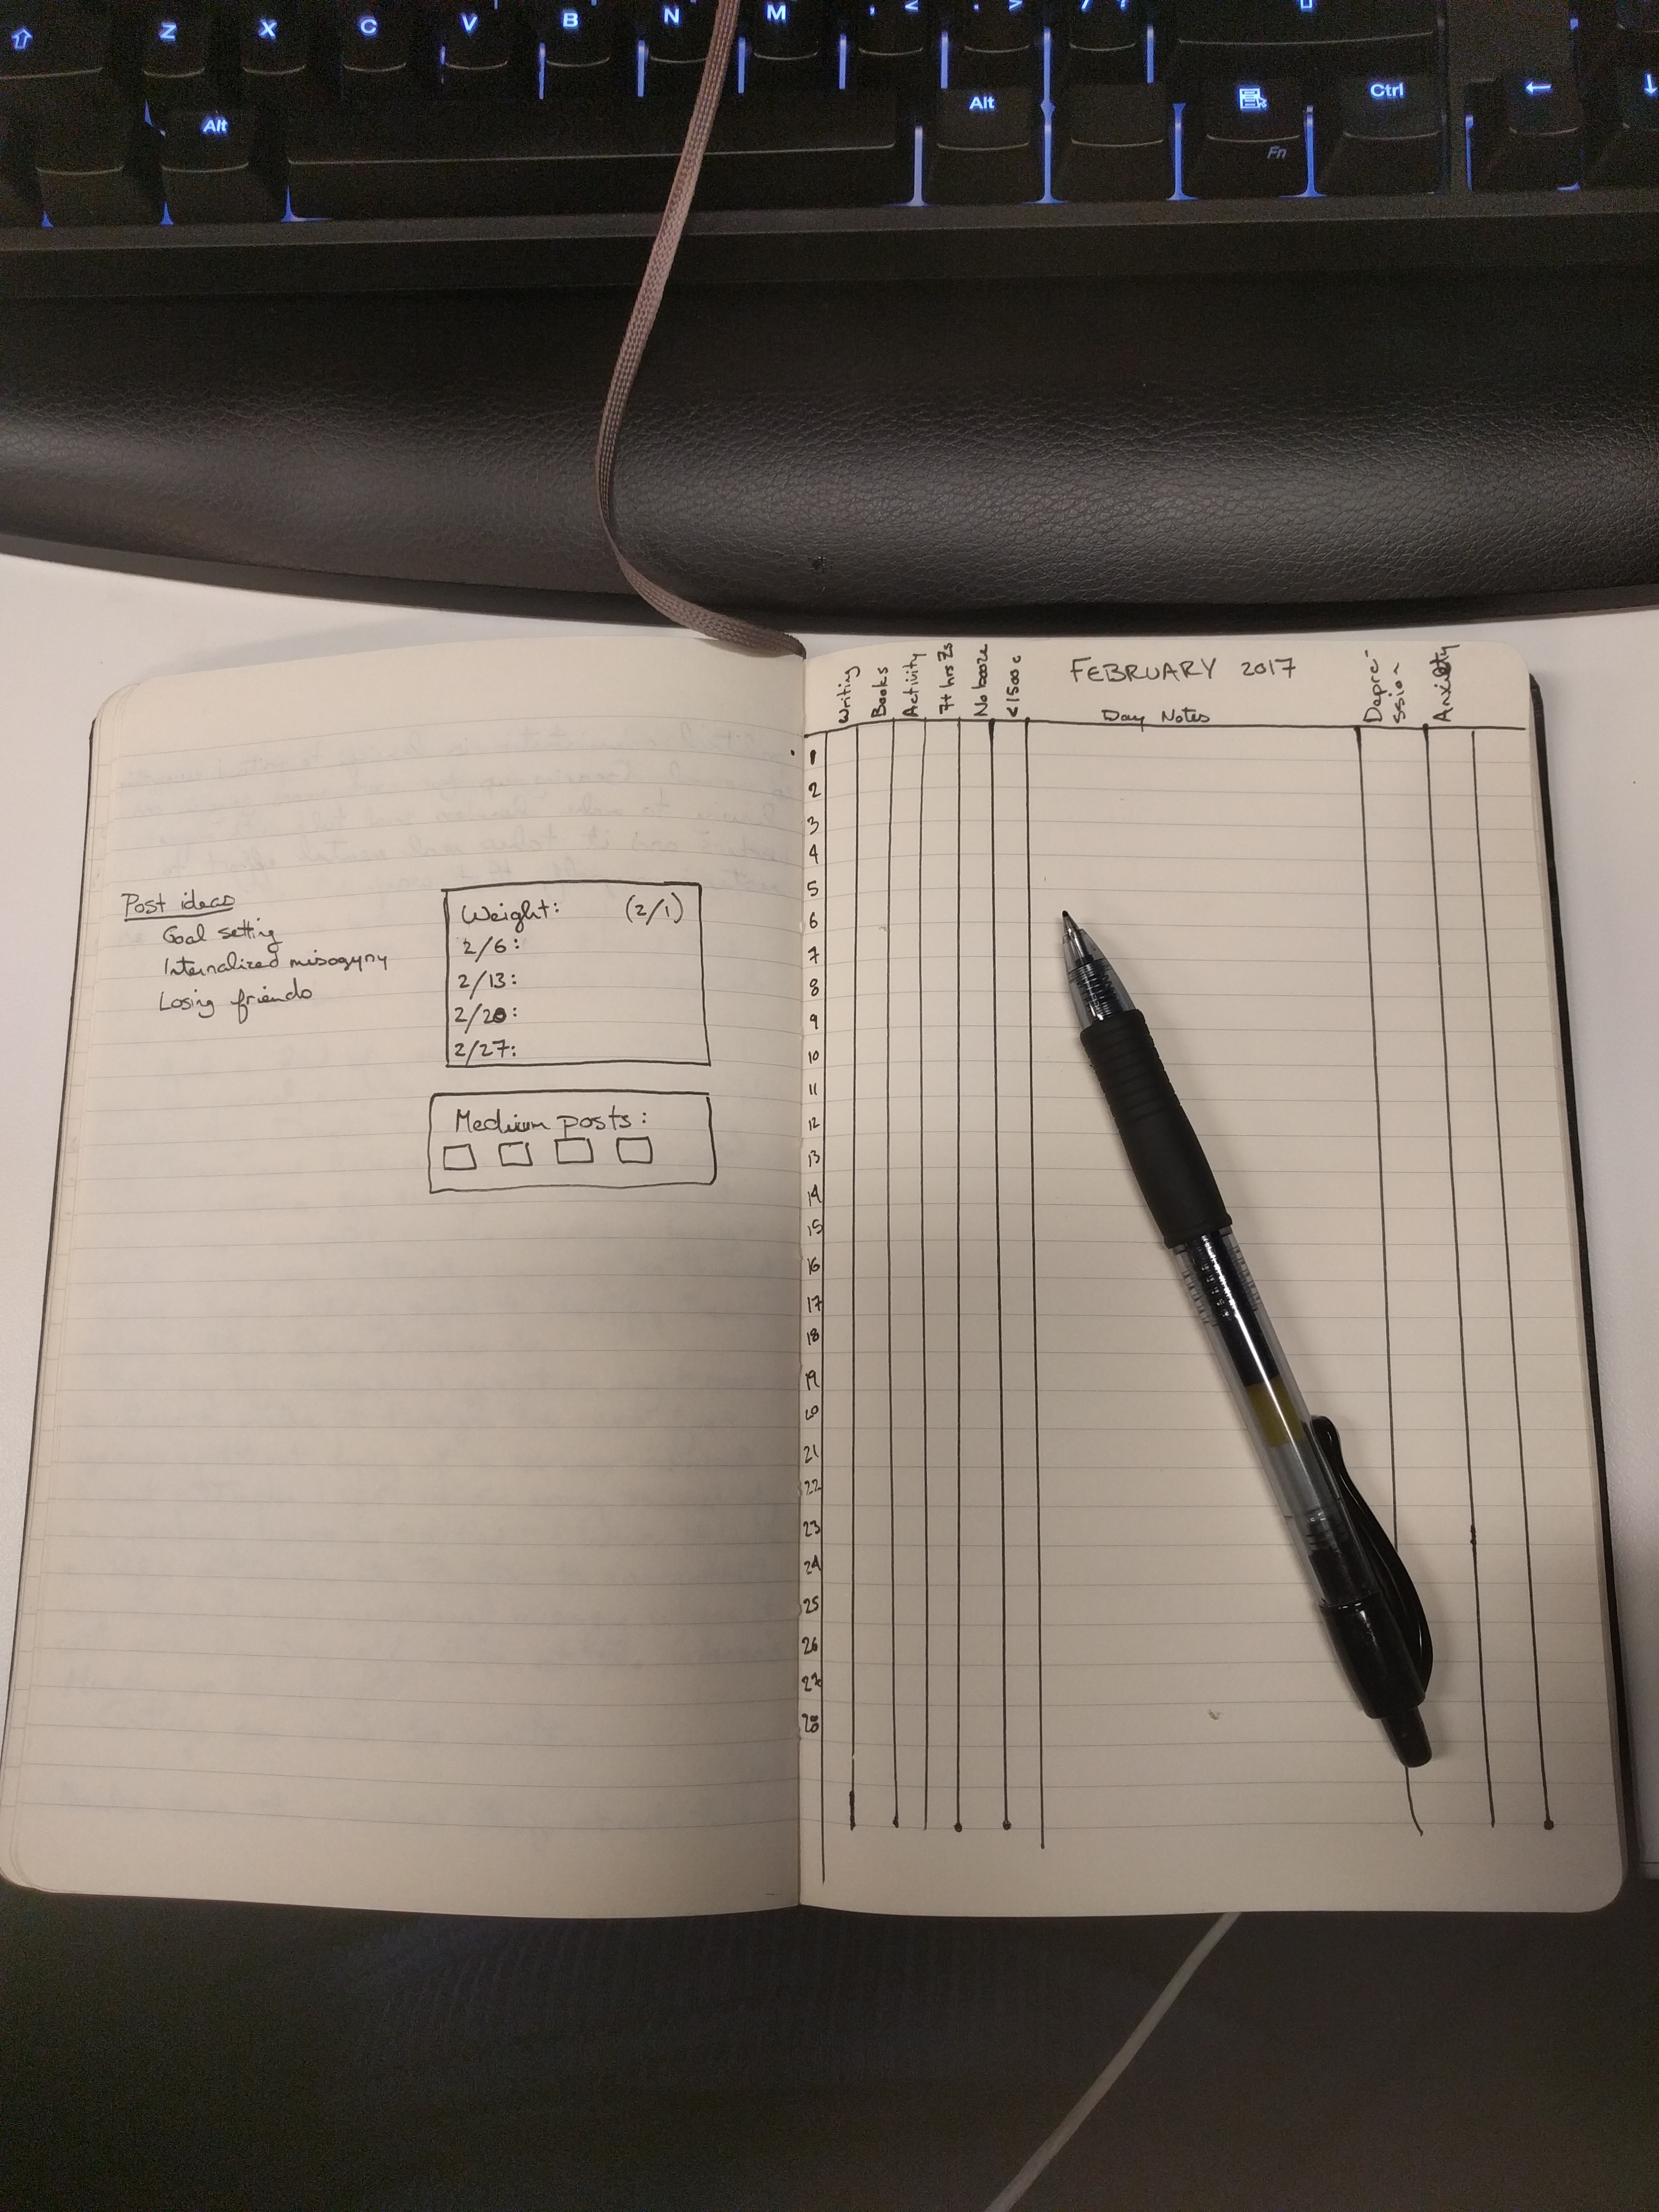 Z X C V B N M , < . > / ?
Alt Alt Ctrl ←  ↓
Fn
Post ideas
Goal setting
Internalized misogyny
Losing friends
Weight: (2/1)
2/6:
2/13:
2/20:
2/27:
Medium posts:
FEBRUARY 2017
Writing
Books
Activity
7+ hrs Zs
No booze
<1500 c
Day Notes
Depre-
ssion
Anxiety
1
2
3
4
5
6
7
8
9
10
11
12
13
14
15
16
17
18
19
20
21
22
23
24
25
26
27
28